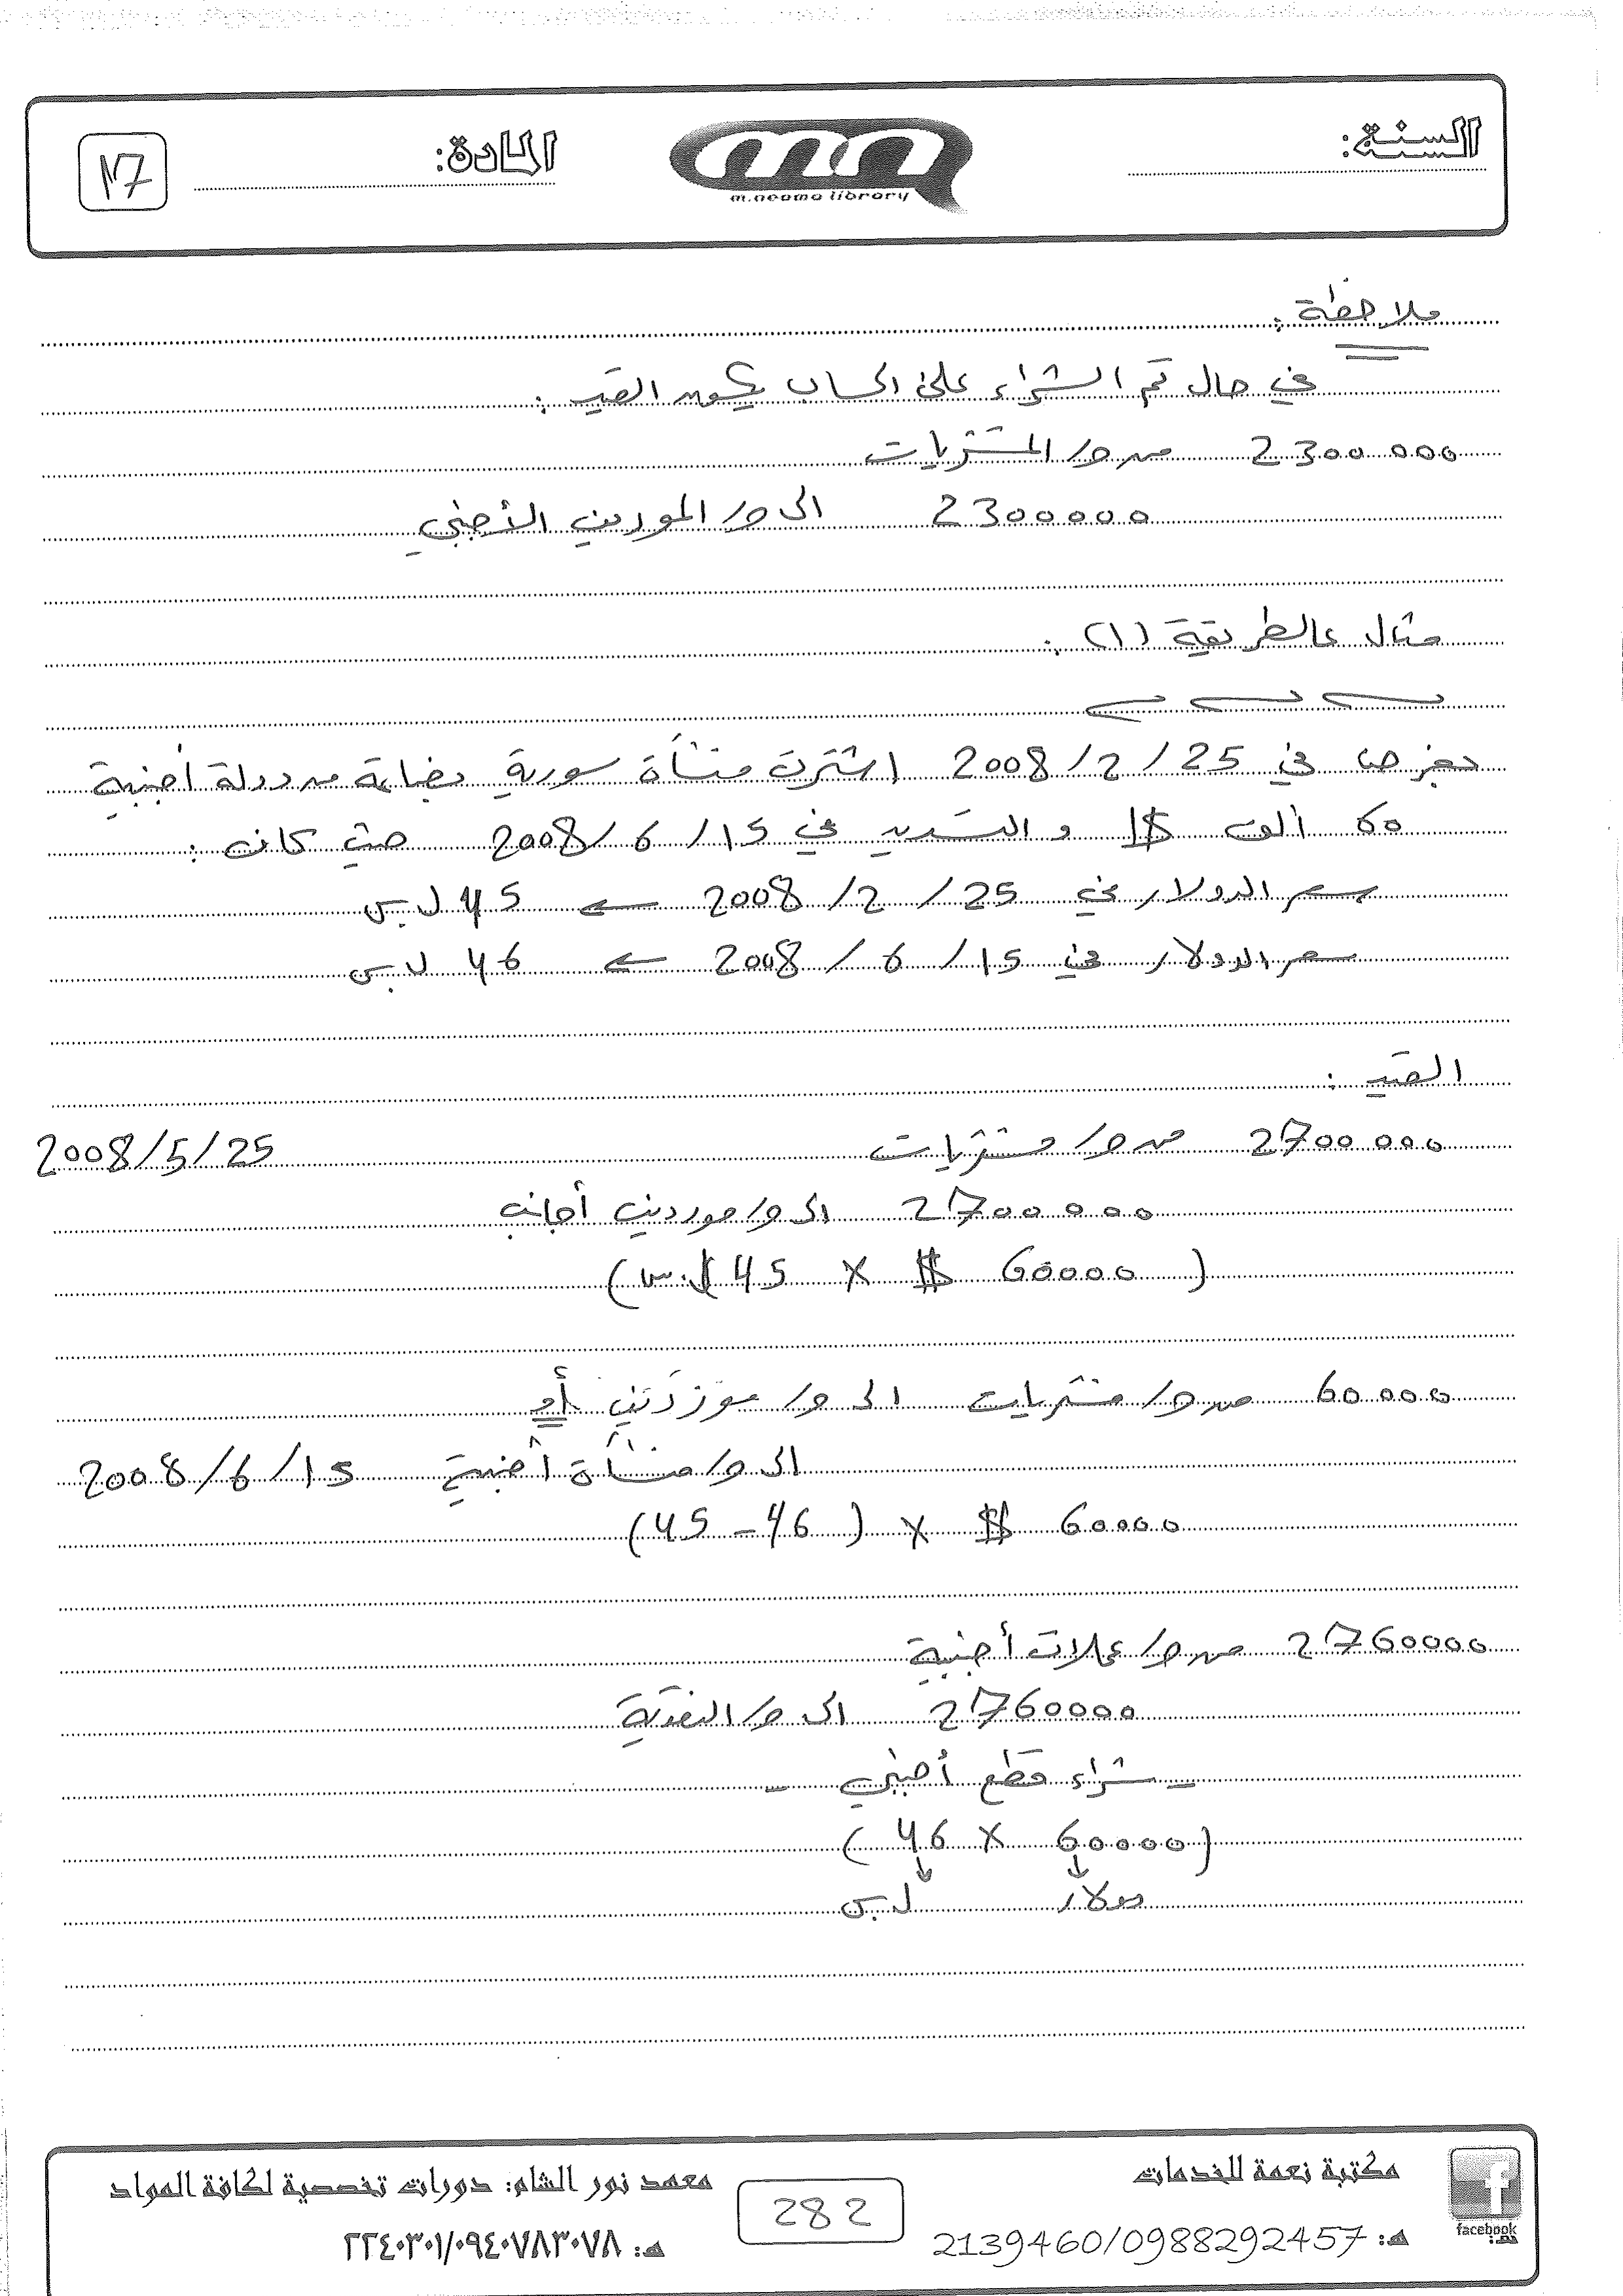 السنة:
m.neama library
المادة:
١٧
ملاحظة:
في حال تم الشراء على الحساب يكون القيد:
2300000 من ح/ المشتريات
2300000 الى ح/ الموردين الأجنبي
مثال عالطريقة (١):
بفرض في 25/2/2008 اشترت منشأة سورية بضاعة من دولة أجنبية
60 ألف $ والتسديد في 15/6/2008 حيث كان:
سعر الدولار في 25/2/2008 ← 45 ل.س
سعر الدولار في 15/6/2008 ← 46 ل.س
القيد:
2700000 من ح/ مشتريات 25/5/2008
2700000 الى ح/ موردين أجانب
(60000 $ × 45 ل.س)
60000 من ح/ مشتريات الى ح/ موردين أو
الى ح/ منشأة أجنبية 15/6/2008
60000 $ × (46 - 45)
2760000 من ح/ عملات أجنبية
2760000 الى ح/ النقدية
- شراء قطع أجنبي -
(60000 × 46)
↓ ↓
دولار ل.س
facebook
مكتبة نعمة للخدمات
هـ: 2139460/0988292457
282
معهد نور الشام: دورات تخصصية لكافة المواد
هـ: ٢٢٤٠٣٠١/٠٩٤٠٧٨٣٠٧٨